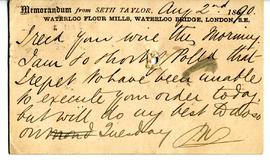 Memorandum from SETH TAYLOR, Aug 2nd 1890.
WATERLOO FLOUR MILLS, WATERLOO BRIDGE, LONDON, S.E.
I recd your wire this Morning
I am so short of Polld that
I regret to have been unable
to execute your order today
but will do my best to do so
on Mond Tuesday